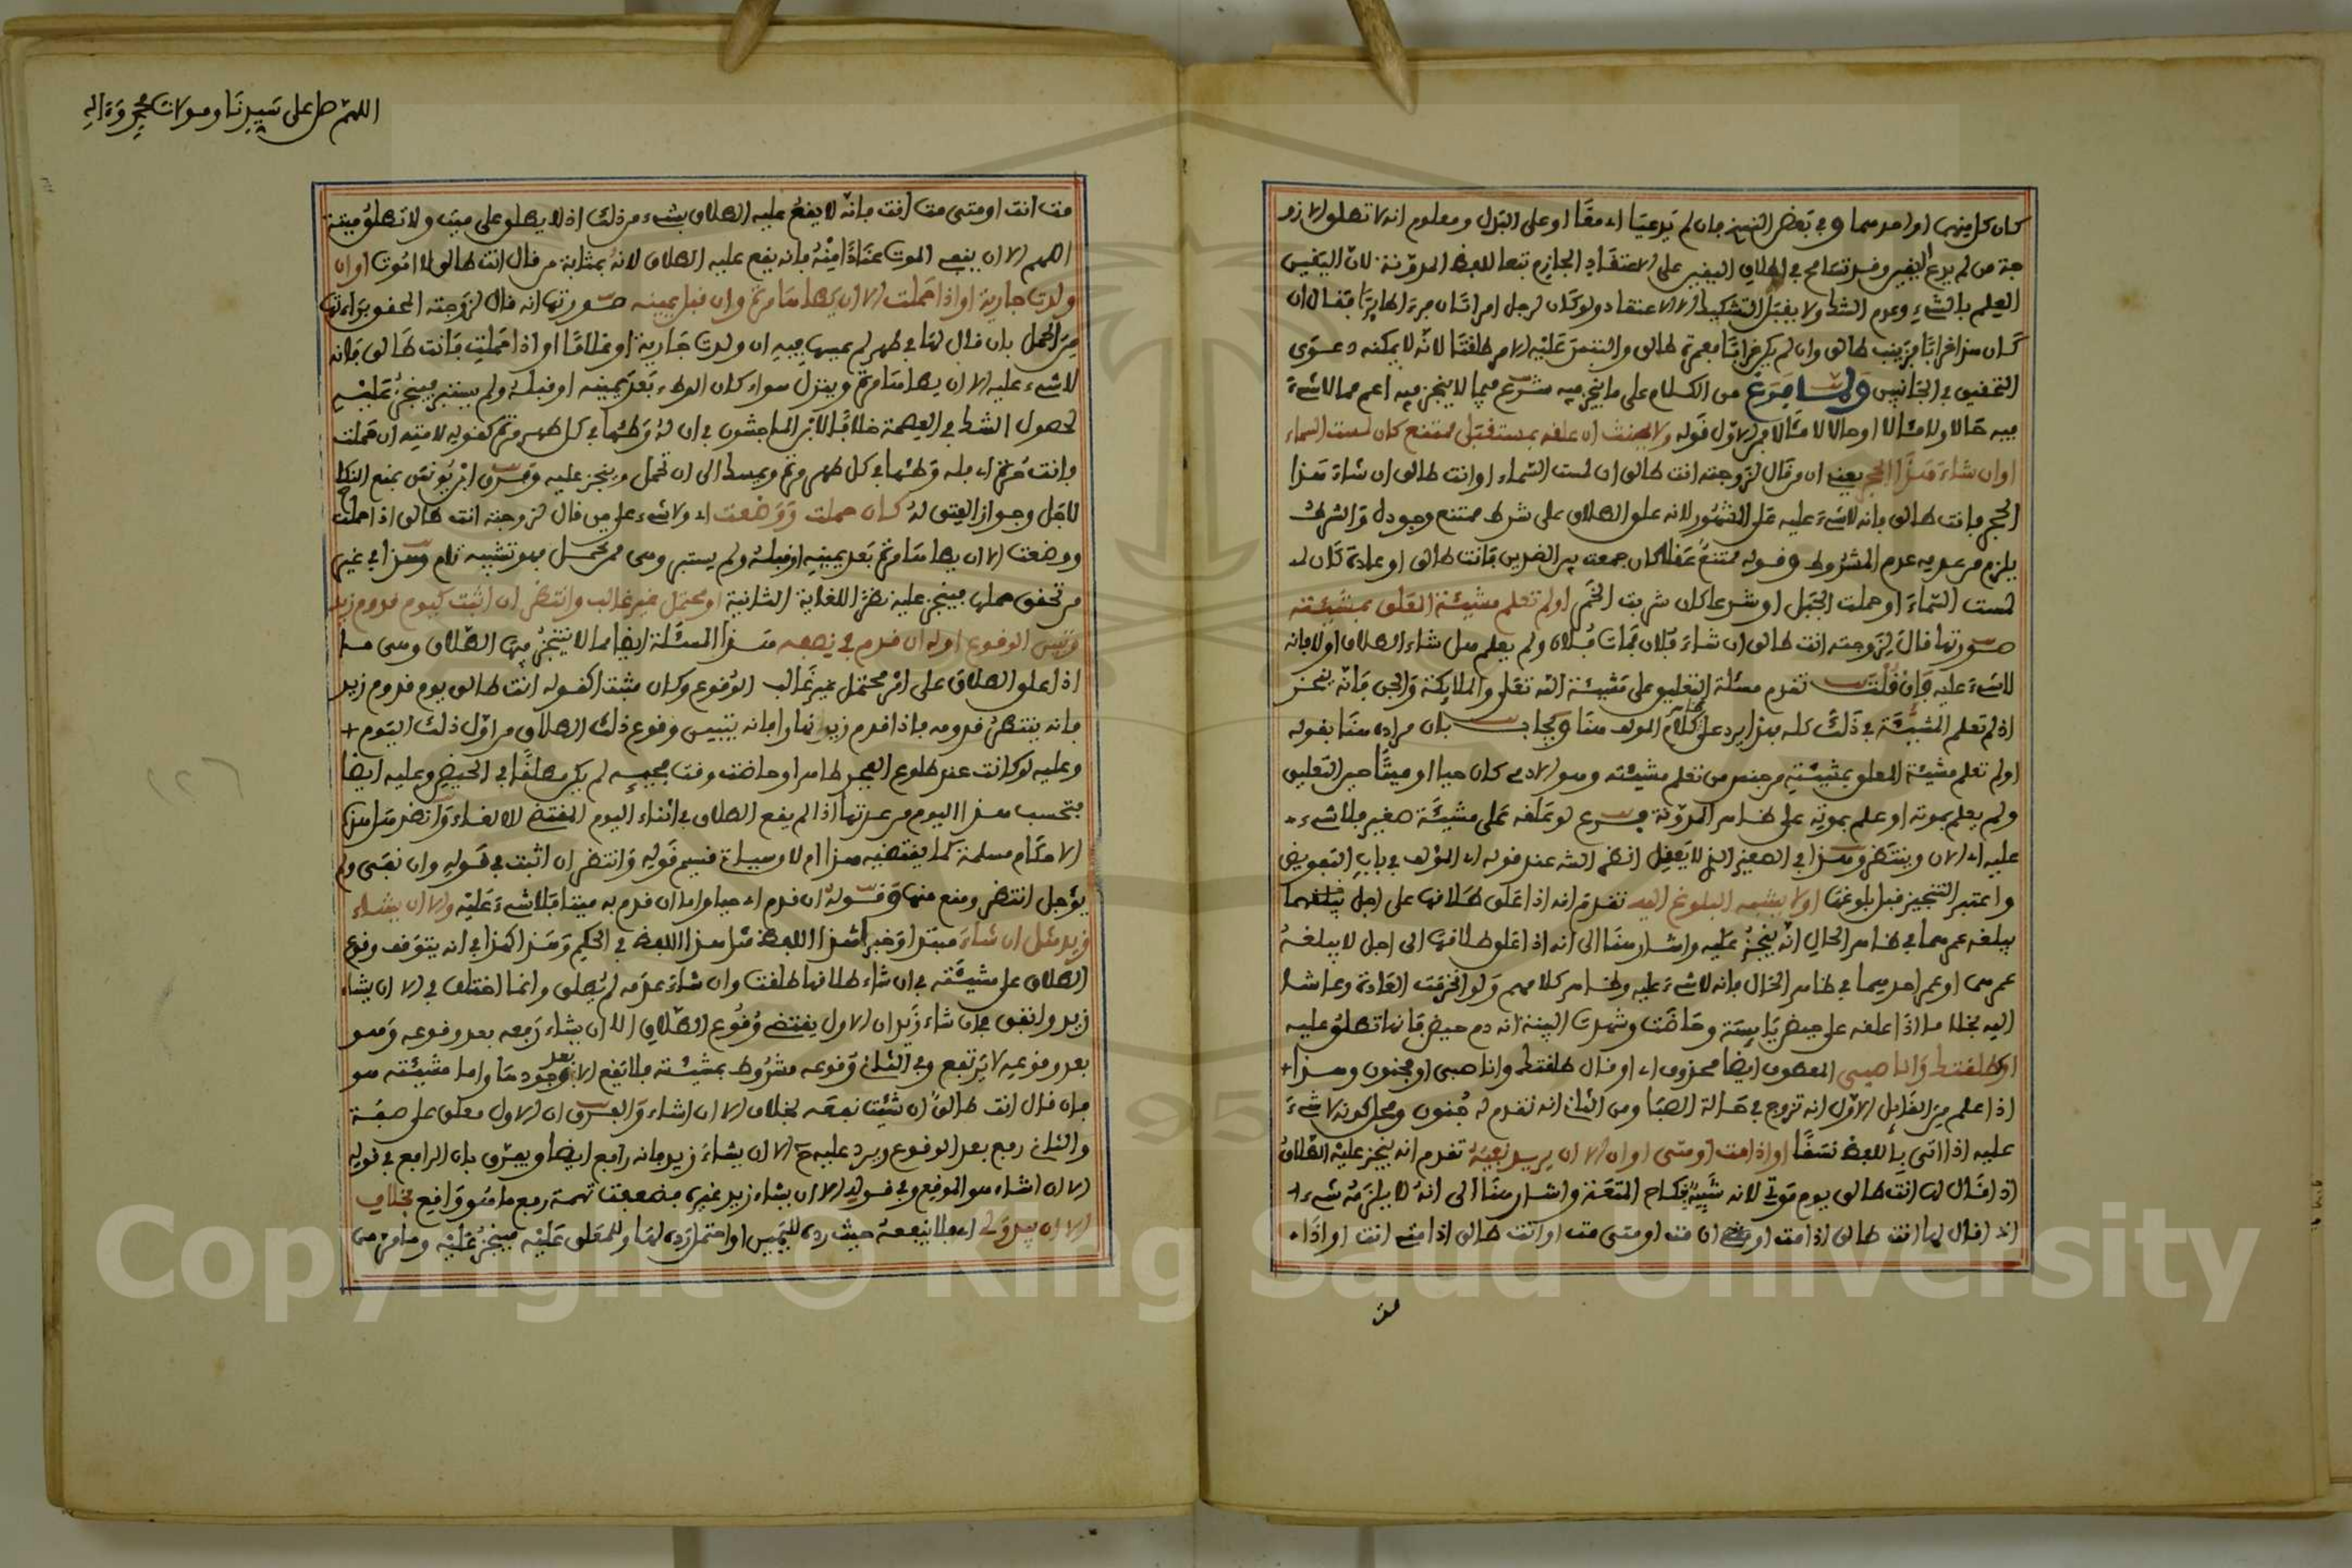 كان كل منهما او احدهما وفي بعض النسخ فان لم يدعيا اي معا او على البدل ومعلوم انه لا تطلق الا زو
جة من لم يدع اليقين وقد تسامح في اطلاق اليقين على الاعتقاد الجازم تبعا للفظ المدونة لان اليقين
العلم بالشيء وعدم الشك ولا يقبل التشكيك الا الاعتقاد ولو كان لرجل امراتان فراى طايرا فقال ان
كان هذا غرابا فزينب طالق وان لم يكن غرابا فعمرة طالق والتبس عليه الامر طلقتا لانه لا يمكنه دعوى
التحقيق في الجانبين ولما فرغ من الكلام على ما ينجز فيه شرع فيما لا ينجز فيه اعم مما لا شيء
فيه حالا ولا مئالا او حالا لا مئالا فمن الاول قوله ولا يحنث ان علقه بمستقبل ممتنع كان لمست السماء
او ان شاء هذا الحجر يعني ان من قال لزوجته انت طالق ان لمست السماء او انت طالق ان شاء هذا
الحجر فانت طالق فانه لا شيء عليه على المشهور لانه علق الطلاق على شرط ممتنع وجوده والشرط
يلزم من عدمه عدم المشروط وقوله ممتنع عقلا كان جمعت بين الضدين فانت طالق او عادة كان لـ
لمست السماء او حملت الجبل او شرعا كان شربت الخمر او لم تعلم مشيئة المعلق بمشيئته
صورتها قال لزوجته انت طالق ان شاء فلان فمات فلان ولم يعلم هل شاء الطلاق او لا فانه
لا شيء عليه فان قلت تقدم مسئلة التعليق على مشيئة الله تعلى والملايكة والجن فانه ينجز
اذ لم تعلم المشيئة في ذلك كله فهذا يرد على كلام المولف هنا ويجاب بان مراده هنا بقوله
او لم تعلم مشيئة المعلق بمشيئته من جنس من تعلم مشيئته وهو الادمي كان حيا او ميتا حين التعليق
ولم يعلم بموته او علم بموته على ظاهر المدونة فرع لو علقه على مشيئة صغير فلا شيء
عليه اي الان وينتظر وهذا في الصغير الذي لا يعقل انظر الشـ عند قوله اي المؤلف في باب التفويض
واعتبر التنجيز قبل بلوغها او لا يشبه البلوغ اليه تقدم انه اذا علق طلاقها على اجل يبلغه
يبلغه عمرهما في ظاهر الحال انه ينجز عليه واشار هنا الى انه اذا علق طلاقها الى اجل لا يبلغه
عمرهما او عمر احدهما في ظاهر الحال فانه لا شيء عليه وظاهر كلامهم ولو انخرقت العادة وعاشا
اليه بخلاف ما اذا علقه على حيض يايسة وحاضت وشهدت البينة انه دم حيض فانها تطلق عليه
او طلقتك وانا صبي المعطوف ايضا محذوف اي او قال طلقتك وانا صبي او مجنون وهذا
اذا علم من القايل الاول انه تزوج في حالة الصبا ومن الثاني انه تقدم له جنون ومحل كونه لا شيء
عليه اذا اتى باللفظ نسقا او اذا مت او متى او ان الا ان يريد نفيه تقدم انه ينجز عليه الطلاق
اذا قال لها انت طالق يوم موتي لانه شبيه بنكاح المتعة واشار هنا الى انه لا يلزمه شيء
اذا قال لها انت طالق اذا مت او ان مت او متى مت او انت طالق اذا مت انت او اذا
مت
اللهم صل على سيدنا ومولانا محمد وءاله
مت انت او متى مت انت فانه لا يقع عليه الطلاق بشيء من ذلك اذ لا يطلق على ميت ولا تطلق ميتة
اللهم الا ان ينفي الموت عنادا منه فانه يقع عليه الطلاق لانه بمثابة من قال انت طالق لا اموت او ان
ولدت جارية او اذا حملت الا ان يطاها مرة وان قبل يمينه صورتها انه قال لزوجته المحقق براءتها
من الحمل بان قال لها في طهر لم يمسها فيه ان ولدت جارية او غلاما او اذا حملت فانت طالق فانه
لا شيء عليه الا ان يطاها مرة وينزل سواء كان الوطء بعد يمينه او قبله ولم يستبر فينجز عليه
لحصول الشك في العصمة خلافا لابن الماجشون في ان له وطئها في كل طهر مرة كقوله لامته ان حملت
فانت حرة اي فله وطئها في كل طهر مرة ويمسك الى ان تحمل وينجز عليه وفرق ابن يونس بمنع النكاح
لاجل وجواز العتق له كان حملت ووضعت اي ولا شيء على من قال لزوجته انت طالق اذا حملت
ووضعت الا ان يطاها مرة بعد يمينه او قبله ولم يستبر وهي ممن تحمل فهو تشبيه تام وهذا في غير
من تحقق حملها فينجز عليه نظرا للغاية الثانية او محتمل غير غالب وانتظر ان اثبت كيوم قدوم زيد
وتبين الوقوع اوله ان قدم في نصفه هذا المسئلة ايضا مما لا يتنجز فيها الطلاق وهي ما
اذا علق الطلاق على امر محتمل غير غالب الوقوع وكان مثبتا كقوله انت طالق يوم قدوم زيد
فانه ينتظر قدومه فاذا قدم زيد نهارا فانه يتبين وقوع ذلك الطلاق من اول ذلك اليوم
وعليه لو كانت عند طلوع الفجر طاهرا وحاضت وقت مجيئه لم يكن مطلقا في الحيض وعليه ايضا
يحسب هذا اليوم من عدتها اذا لم يقع الطلاق في اثناء اليوم المقتضي للالغاء وانظر هل هذه
الاحكام مسلمة كما يقتضيه هذا ام لا وسياتي قسيم قوله وانتظر ان اثبت في قوله وان نفى ولم
يؤجل انتظر ومنع منها وقوله ان قدم اي حيا واما ان قدم به ميتا فلا شيء عليه والا ان يشاء
زيد مثل ان شاء مبتدا وخبر اي هذا اللفظ مثل هذا اللفظ في الحكم وهذا كهذا في انه يتوقف وقوع
الطلاق على مشيئته في ان شاء طلاقها طلقت وان شاء عدمه لم تطلق وانما اختلف في الا ان يشاء
زيد واتفق في ان شاء زيد ان الاول يقتضي وقوع الطلاق الا ان يشاء رفعه بعد وقوعه وهو
بعد وقوعه لا يرتفع وفي الثاني وقوعه مشروط بمشيئته فلا يقع الا بعد وجودها واما مشيئته هو
فان قال انت طالق ان شئت نفعه بخلاف الا ان اشاء والفرق ان الاول معلق على صفة
والثاني رفع بعد الوقوع ويرد عليه الا ان يشاء زيد فانه رافع ايضا ويفرق بان الرافع في قوله
الا ان اشاء هو الموقع وفي قوله الا ان يشاء زيد غيره فضعفت تهمة رفع ما هو واقع بخلاف
الا ان يبدو لي اي فلا ينفعه حيث رده لليمين او احتمل رده لها وللمعلق عليه فينجز عليه وما مر من